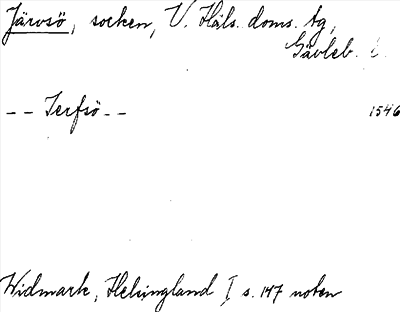 Järvsö, socken, V. Häls. doms. tg,
Gävleb. l.
-- Jerfsö -- 1546
Widmark, Helsingland I s. 147 noten